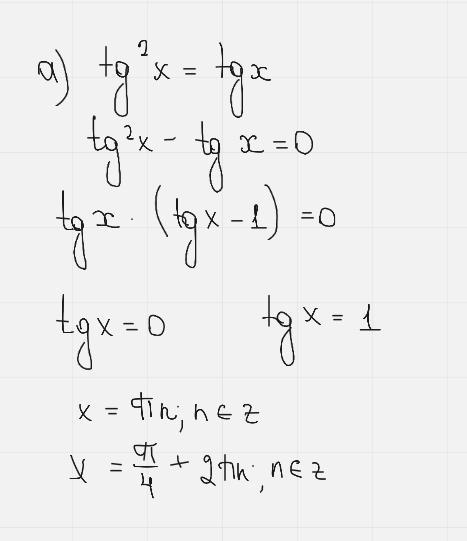 а) tg²x = tgx
tg²x - tg x = 0
tgx · (tgx - 1) = 0
tgx = 0 tgx = 1
x = πn; n ∈ z
x = π/4 + 2πn; n ∈ z